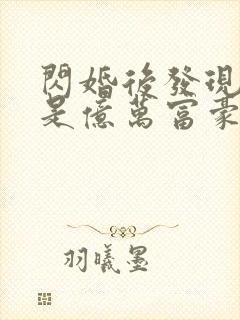 閃婚後發現
是億萬富豪
羽曦墨